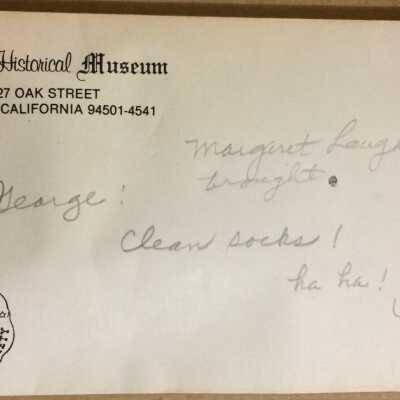 Historical Museum
27 OAK STREET
CALIFORNIA 94501-4541
Margaret Laugh
brought.
George!
Clean socks!
ha ha!